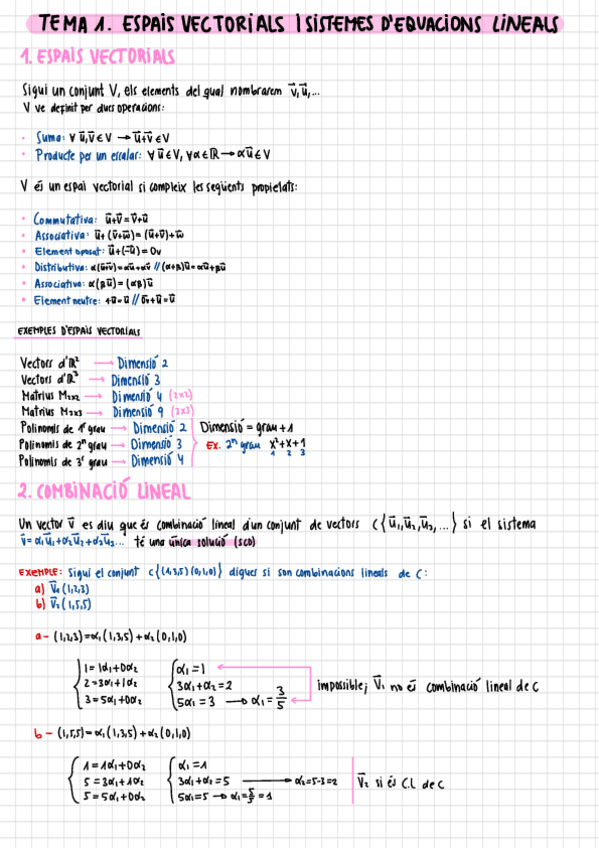 TEMA 1. ESPAIS VECTORIALS I SISTEMES D'EQUACIONS LINEALS
1. ESPAIS VECTORIALS
Sigui un conjunt V, els elements del qual nombrarem v⃗, u⃗,...
V ve definit per dues operacions:
· Suma: ∀ u⃗,v⃗ ∈ V → u⃗+v⃗ ∈ V
· Producte per un escalar: ∀ u⃗ ∈ V, ∀α∈ℝ → αu⃗ ∈ V
V és un espai vectorial si compleix les següents propietats:
· Commutativa: u⃗+v⃗ = v⃗+u⃗
· Associativa: u⃗+(v⃗+w⃗)=(u⃗+v⃗)+w⃗
· Element oposat: u⃗+(-u⃗)=0v
· Distributiva: α(u⃗+v⃗)=αu⃗+αv⃗ // (α+β)u⃗=αu⃗+βu⃗
· Associativa: α(βu⃗)=(αβ)u⃗
· Element neutre: 1·u⃗=u⃗ // 0⃗v+u⃗=u⃗
EXEMPLES D'ESPAIS VECTORIALS
Vectors d'ℝ² → Dimensió 2
Vectors d'ℝ³ → Dimensió 3
Matrius M2x2 → Dimensió 4 (2x2)
Matrius M3x3 → Dimensió 9 (3x3)
Polinomis de 1r grau → Dimensió 2 Dimensió = grau + 1
Polinomis de 2n grau → Dimensió 3 Ex. 2n grau x²+x+1
1 2 3
Polinomis de 3r grau → Dimensió 4
2. COMBINACIÓ LINEAL
Un vector v⃗ es diu que és combinació lineal d'un conjunt de vectors C{u⃗₁,u⃗₂,u⃗₃,...} si el sistema
v⃗=α₁u⃗₁+α₂u⃗₂+α₃u⃗₃... té una única solució (SCD)
EXEMPLE: Sigui el conjunt C{(1,3,5)(0,1,0)} digues si son combinacions lineals de C:
a) v⃗₁(1,2,3)
b) v⃗₂(1,5,5)
a- (1,2,3)=α₁(1,3,5)+α₂(0,1,0)
1=1α₁+0α₂ α₁=1
2=3α₁+1α₂ 3α₁+α₂=2 impossible; v⃗₁ no és combinació lineal de C
3=5α₁+0α₂ 5α₁=3 → α₁=3/5
b- (1,5,5)=α₁(1,3,5)+α₂(0,1,0)
1=1α₁+0α₂ α₁=1
5=3α₁+1α₂ 3α₁+α₂=5 → α₂=5-3=2 v⃗₂ si és C.L de C
5=5α₁+0α₂ 5α₁=5 → α₁=5/5=1